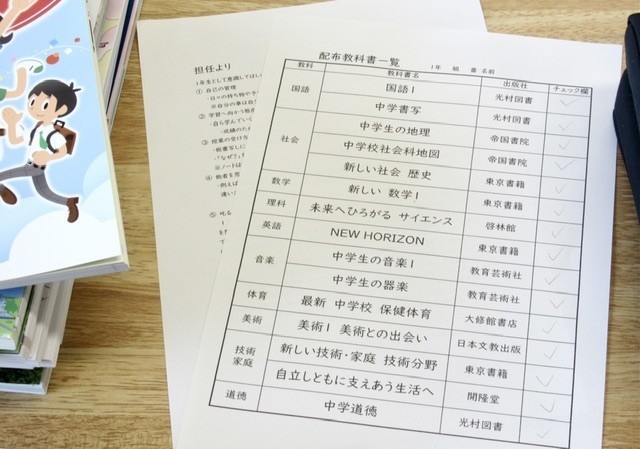 担任より
1年生として意識してほし
① 自己の管理
・日々の持ち物や
※自分の事は自
② 学習へ向かう
・自ら学んでいく
③ 授業の受け方
・板書写しに
・「なぜ?」
※ノートは
④ 他者を
・例えば
⑤ 叱る
配布教科書一覧
1年 組 番 名前
教科 教科書名 出版社 チェック欄
国語 国語1 光村図書
中学書写 光村図書
社会 中学生の地理 帝国書院
中学校社会科地図 帝国書院
新しい社会 歴史 東京書籍
数学 新しい 数学1 東京書籍
理科 未来へひろがる サイエンス 啓林館
英語 NEW HORIZON 東京書籍
音楽 中学生の音楽1 教育芸術社
中学生の器楽 教育芸術社
体育 最新 中学校 保健体育 大修館書店
美術 美術1 美術との出会い 日本文教出版
技術家庭 新しい技術・家庭 技術分野 東京書籍
自立しともに支えあう生活へ 開隆堂
道徳 中学道徳 光村図書